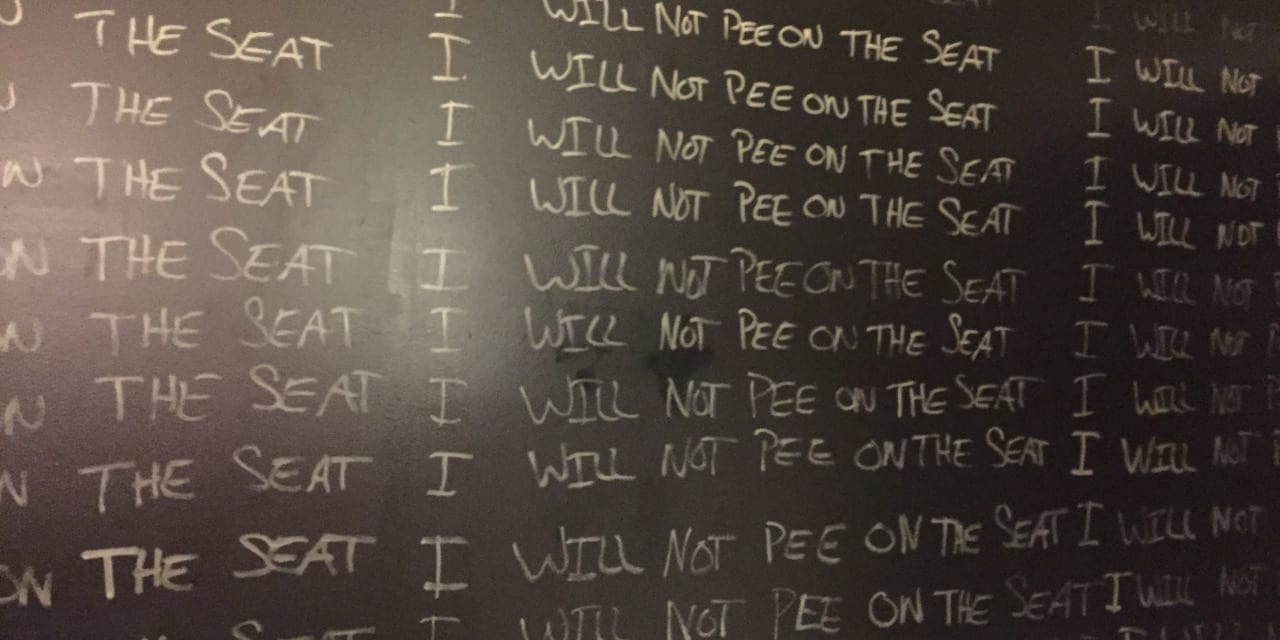 THE SEAT I WILL NOT PEE ON THE SEAT I WILL NOT
THE SEAT I WILL NOT PEE ON THE SEAT I WILL NOT
THE SEAT I WILL NOT PEE ON THE SEAT I WILL NOT
ON THE SEAT I WILL NOT PEE ON THE SEAT I WILL NOT
ON THE SEAT I WILL NOT PEE ON THE SEAT I WILL NOT
ON THE SEAT I WILL NOT PEE ON THE SEAT I WILL NOT
ON THE SEAT I WILL NOT PEE ON THE SEAT I WILL NOT
ON THE SEAT I WILL NOT PEE ON THE SEAT I WILL NOT
ON THE SEAT I WILL NOT PEE ON THE SEAT I WILL NOT
SEAT I WILL NOT PEE ON THE SEAT I WILL NOT